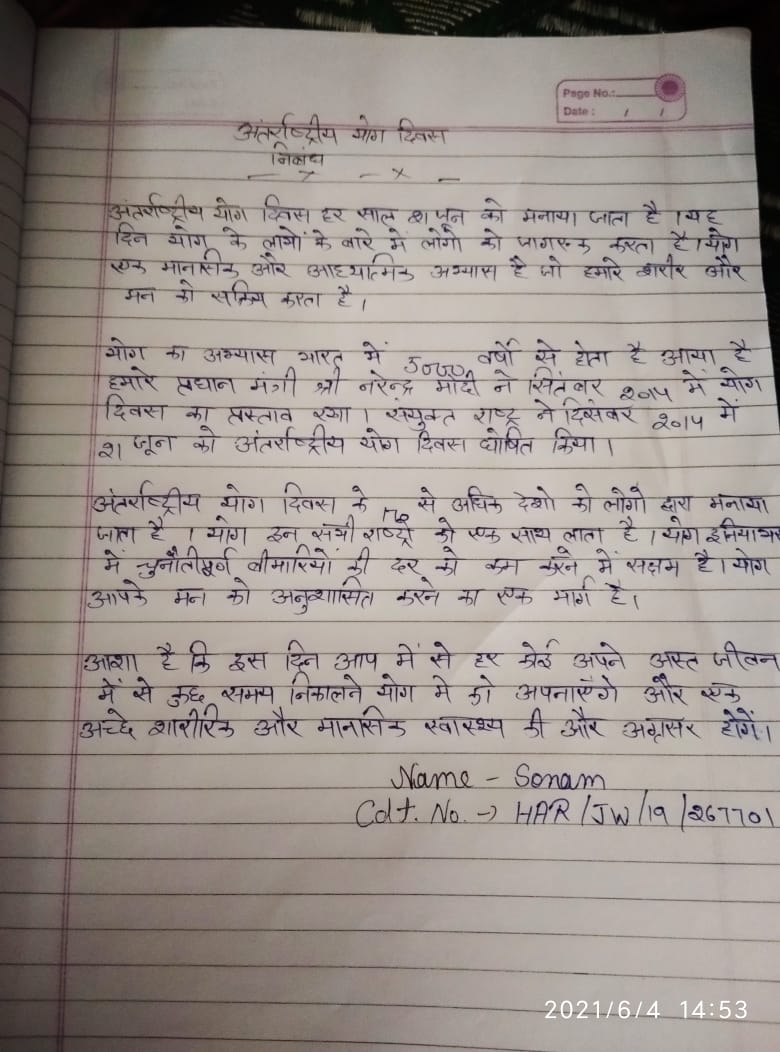 Page No.:
Date : / /
अंतर्राष्ट्रीय योग दिवस
निबंध
— x — x —
अंतर्राष्ट्रीय योग दिवस हर साल 21 जून को मनाया जाता है । यह
दिन योग के लाभों के बारे में लोगो को जागरूक करता है । योग
एक मानसिक और आध्यात्मिक अभ्यास है जो हमारे शरीर और
मन को सक्रिय करता है ।
योग का अभ्यास भारत में 5000 वर्षो से होता है आया है
हमारे प्रधान मंत्री श्री नरेन्द्र मोदी ने सितंबर 2014 में योग
दिवस का प्रस्ताव रखा । संयुक्त राष्ट्र ने दिसंबर 2014 में
21 जून को अंतर्राष्ट्रीय योग दिवस घोषित किया ।
अंतर्राष्ट्रीय योग दिवस के से अधिक देशो को लोगों द्वारा मनाया
जाता है । योग इन सभी राष्ट्रो को एक साथ लाता है । योग
में चुनौतीपूर्ण बीमारियों की दर को कम करने में सक्षम है । योग
आपके मन को अनुशासित करने का एक मार्ग है ।
आशा है कि इस दिन आप में से हर कोई अपने जीवन
में से कुछ समय निकालने योग मे को अपनाएंगे और एक
अच्छे शारीरिक और मानसिक स्वास्थ्य की और अग्रसर होगें ।
Name - Sonam
Cdt. No. -> HAR/JW/19/267701
2021/6/4 14:53